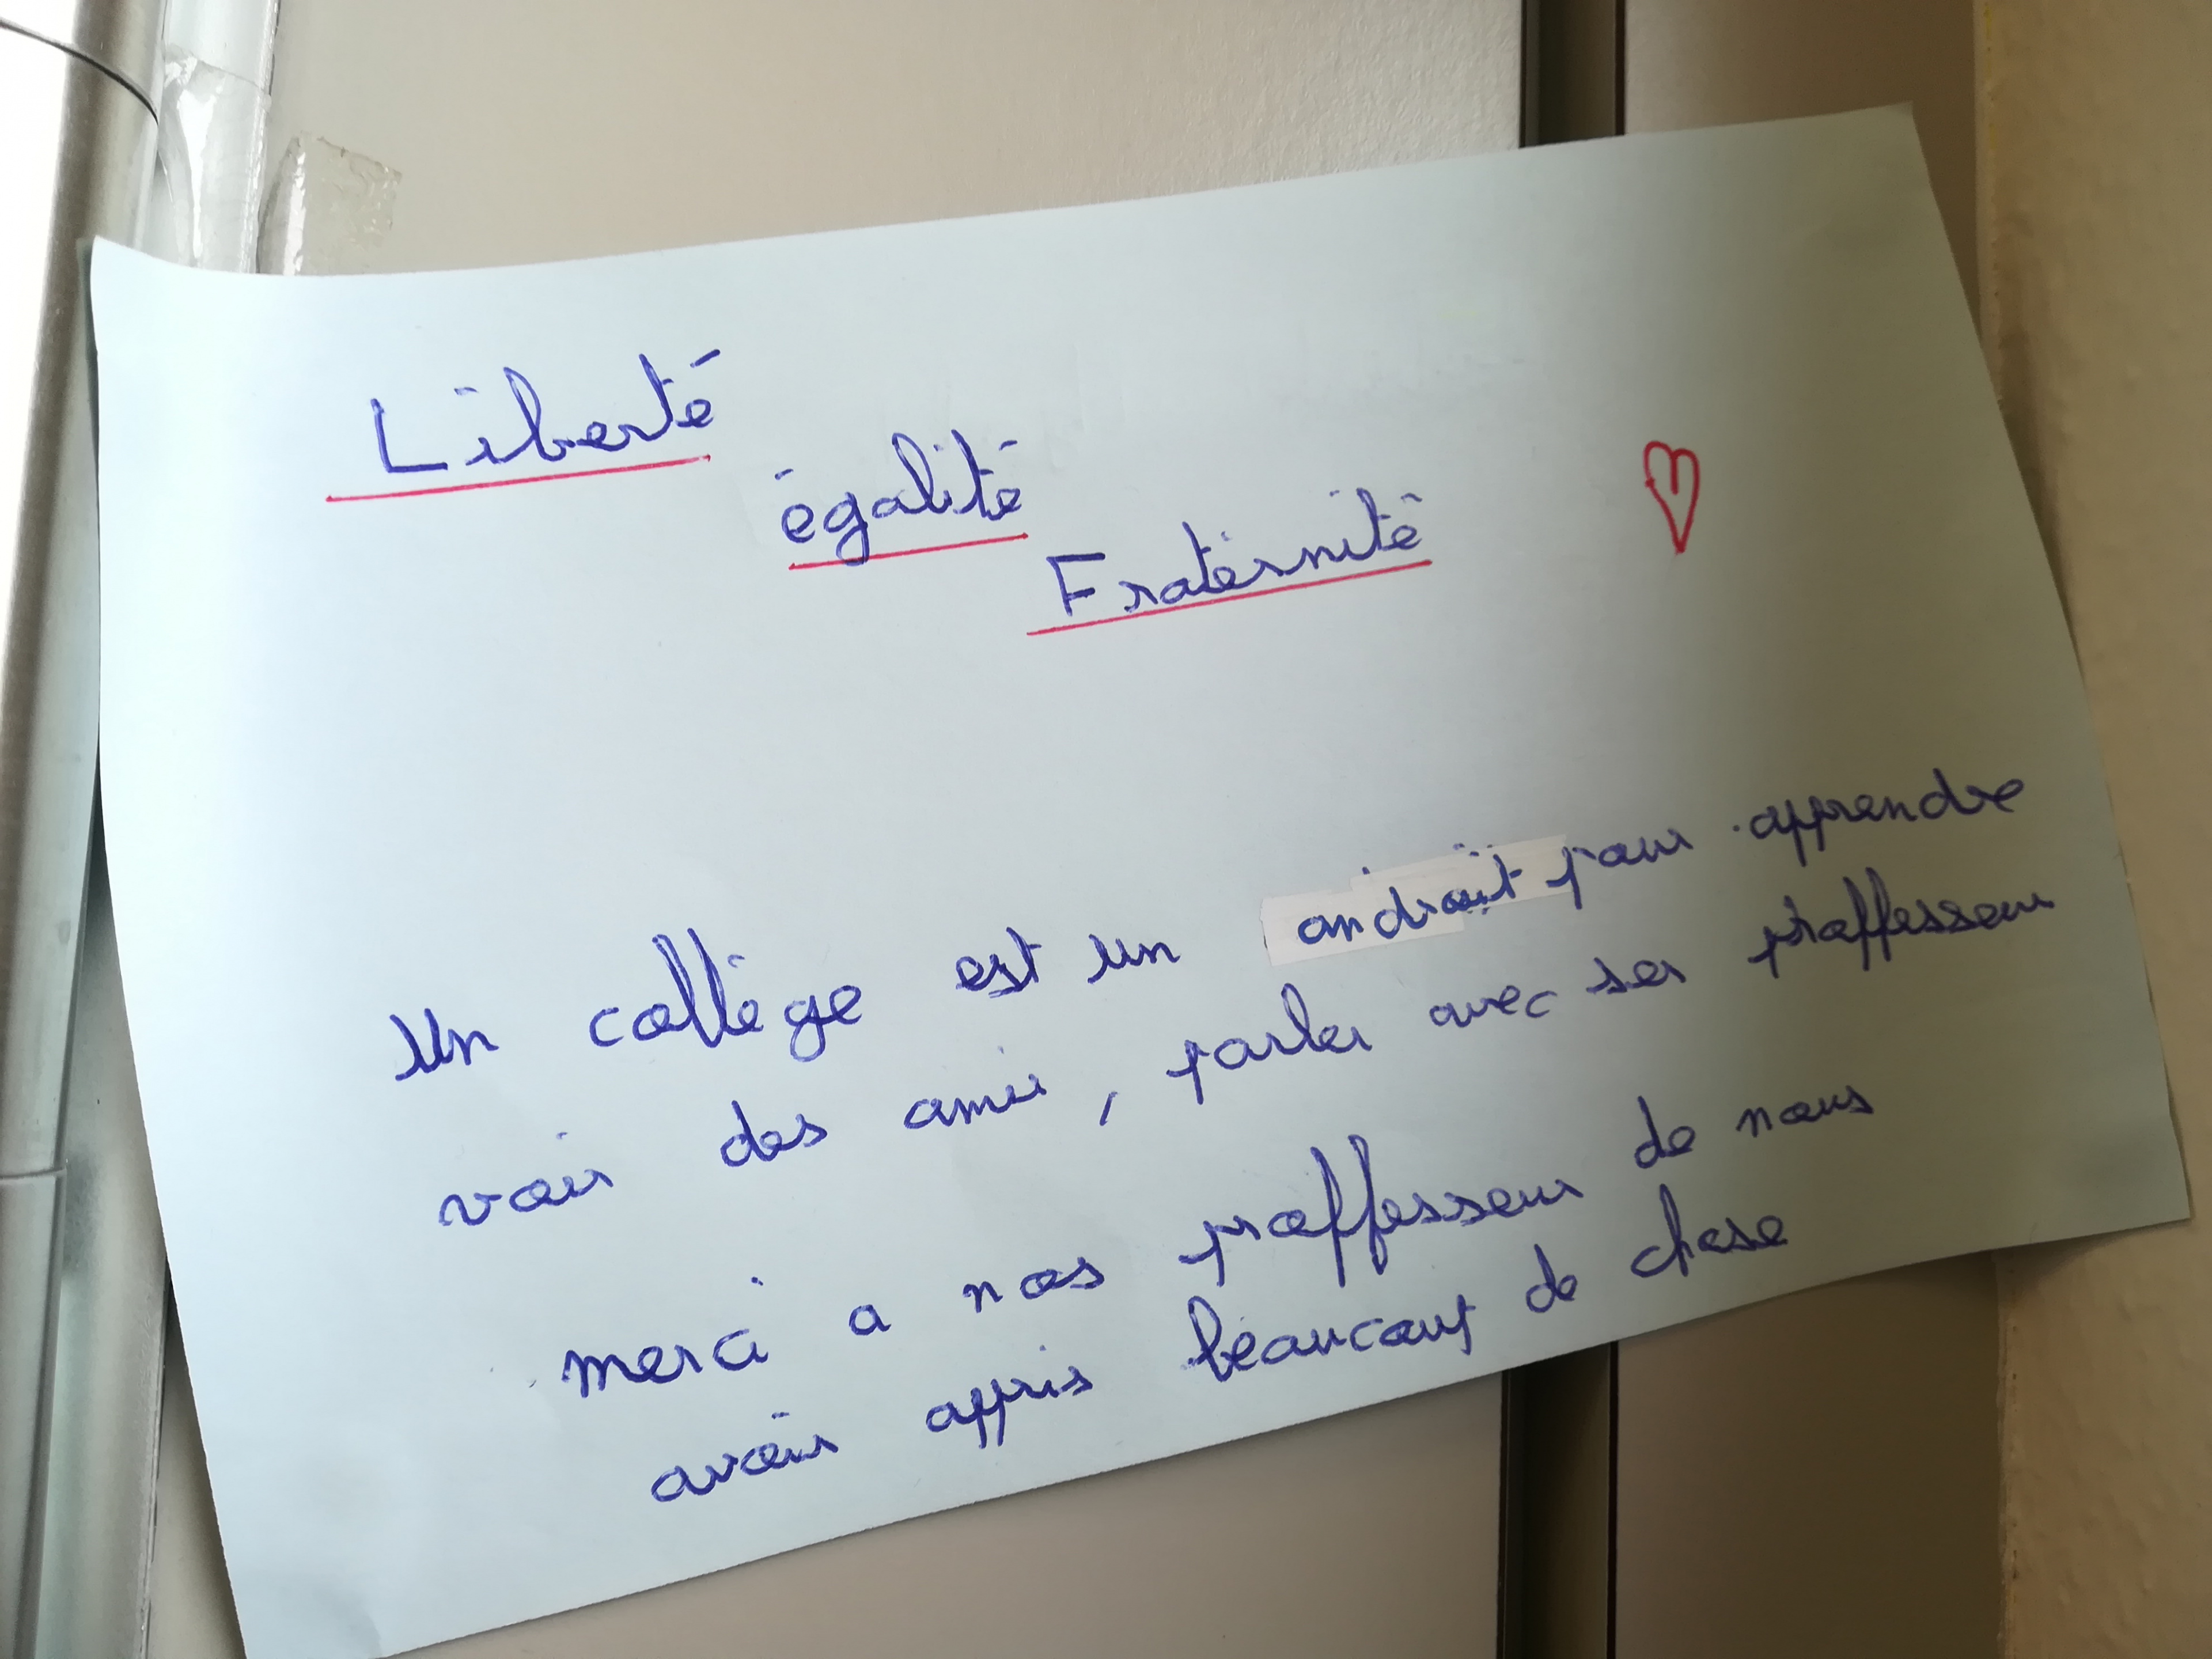 Liberté
égalité
Fratérnité
Un collége est un androit pour apprendre
voir des amis, parler avec ses proffesseur
merci a nos proffesseur de nous
avoir appris béaucoup de chose